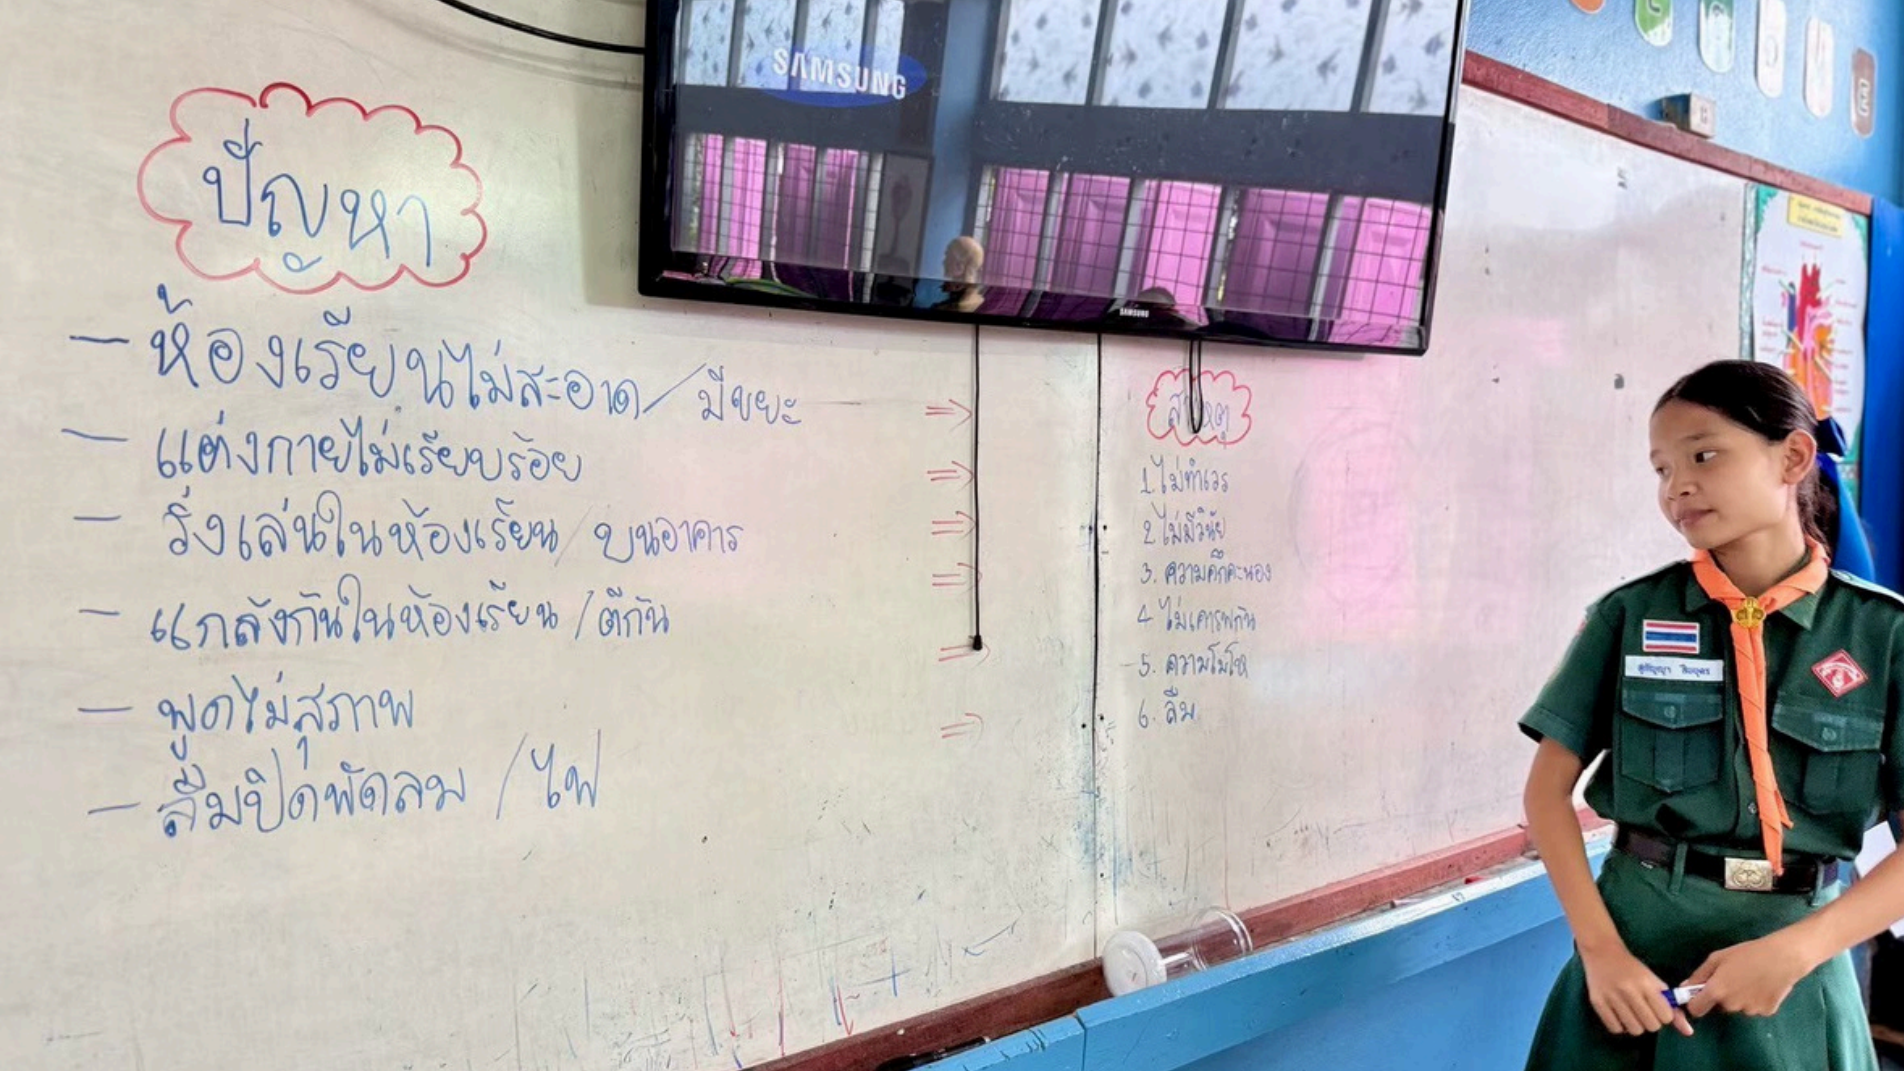 SAMSUNG
SAMSUNG
ปัญหา
- ห้องเรียนไม่สะอาด / มีขยะ
- แต่งกายไม่เรียบร้อย
- วิ่งเล่นในห้องเรียน / บนอาคาร
- แกล้งกันในห้องเรียน / ตีกัน
- พูดไม่สุภาพ
- ลืมปิดพัดลม / ไฟ
สาเหตุ
1. ไม่ทำเวร
2 ไม่มีวินัย
3. ความคึกคะนอง
4 ไม่เคารพกัน
5. ความโมโห
6. ลืม